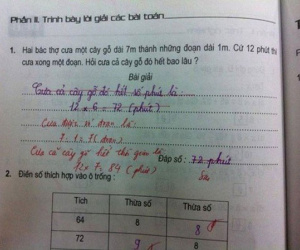 Phần II. Trình bày lời giải các bài toán
1. Hai bác thợ cưa một cây gỗ dài 7m thành những đoạn dài 1m. Cứ 12 phút thì
cưa xong một đoạn. Hỏi cưa cả cây gỗ đó hết bao lâu ?
Bài giải
Cưa cả cây gỗ đó hết số phút là :
12 x 6 = 72 (phút)
Cưa được số đoạn là:
7 : 1 = 7 (đoạn)
Cưa cả cây gỗ hết thời gian là:
12 x 7 = 84 (phút)
Đáp số : 72 phút
Sai
2. Điền số thích hợp vào ô trống :
Tích Thừa số Thừa số
64 8 8
72 9 8